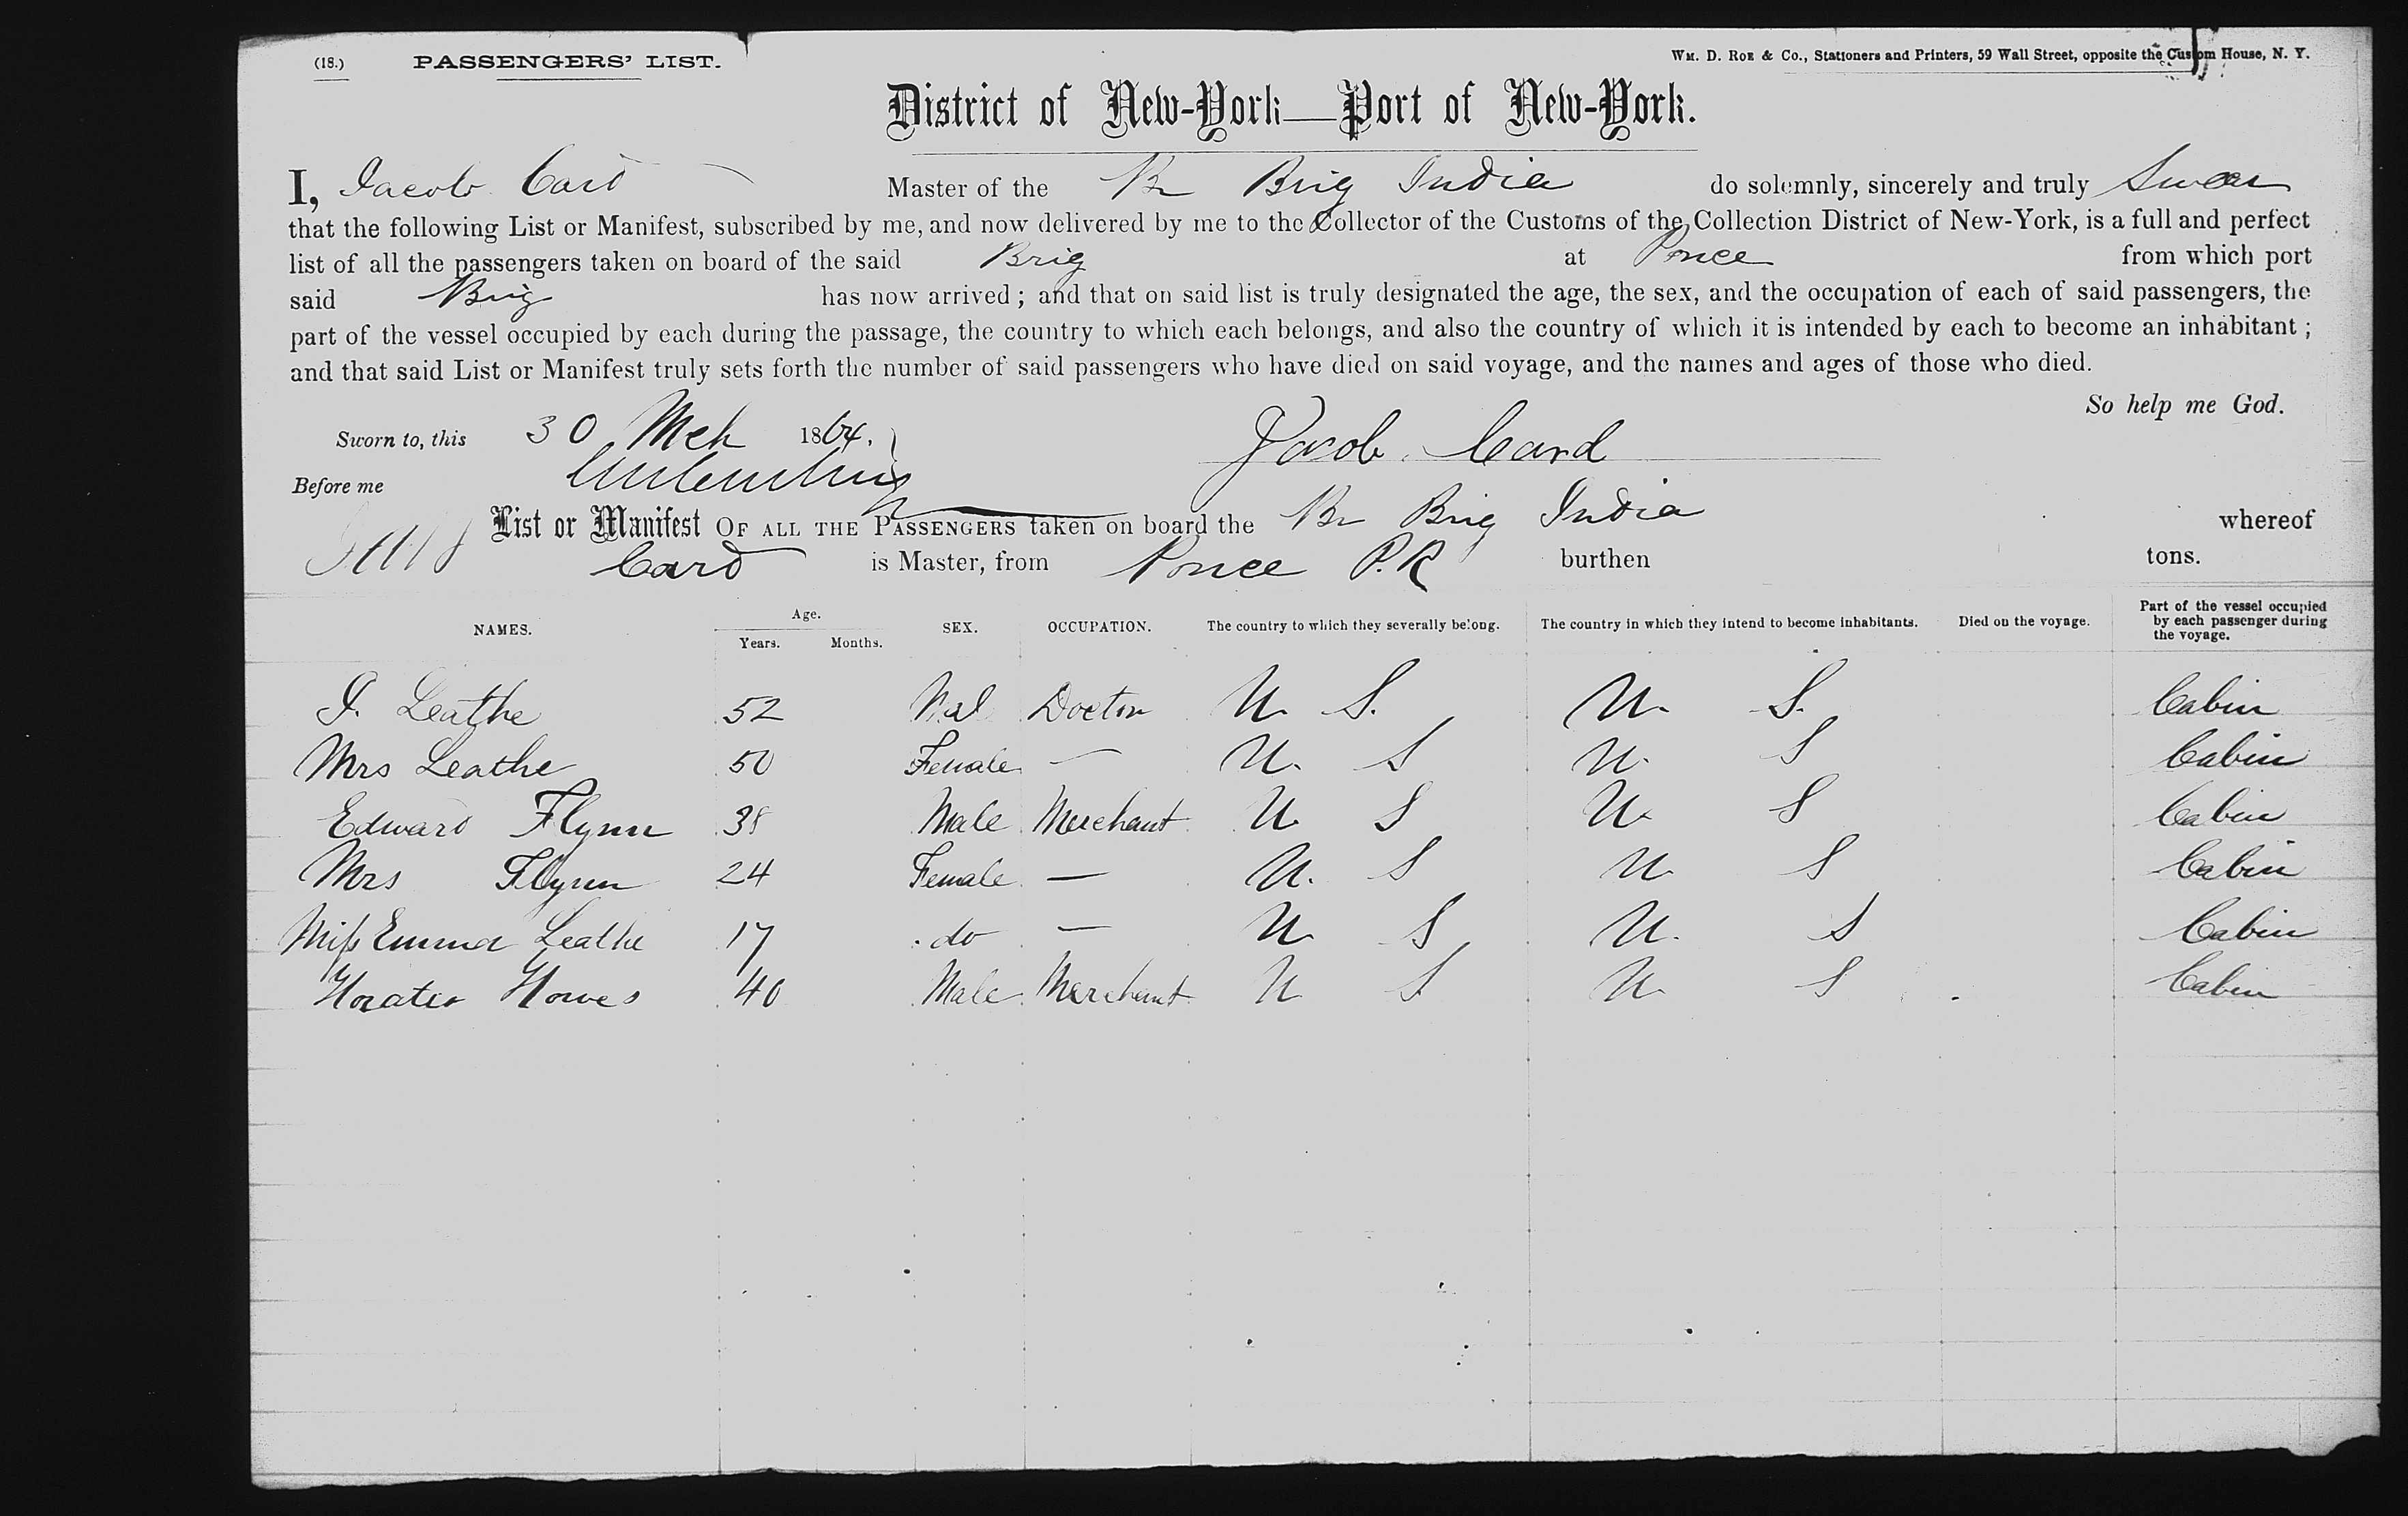 (18.) PASSENGERS' LIST. Wm. D. Roe & Co., Stationers and Printers, 59 Wall Street, opposite the Custom House, N. Y.
District of New-York—Port of New-York.
I, Jacob Card Master of the Br Brig India do solemnly, sincerely and truly Swear
that the following List or Manifest, subscribed by me, and now delivered by me to the Collector of the Customs of the Collection District of New-York, is a full and perfect
list of all the passengers taken on board of the said Brig at Ponce from which port
said Brig has now arrived; and that on said list is truly designated the age, the sex, and the occupation of each of said passengers, the
part of the vessel occupied by each during the passage, the country to which each belongs, and also the country of which it is intended by each to become an inhabitant;
and that said List or Manifest truly sets forth the number of said passengers who have died on said voyage, and the names and ages of those who died.
So help me God.
Sworn to, this 30 Mch 1864. Jacob Card
Before me
List or Manifest OF ALL THE PASSENGERS taken on board the Br Brig India whereof
Card is Master, from Ponce P.R burthen tons.
NAMES. Age. Years. Months. SEX. OCCUPATION. The country to which they severally belong. The country in which they intend to become inhabitants. Died on the voyage. Part of the vessel occupied by each passenger during the voyage.
Leathe 52 Mal Doctor U. S. U. S. Cabin
Mrs Leathe 50 Female — U. S U. S Cabin
Edward Flynn 38 Male Merchant U. S U. S Cabin
Mrs Flynn 24 Female — U. S U. S Cabin
Miss Emma Leathe 17 do — U. S U. S Cabin
Horatio Howes 40 Male Merchant U S U. S Cabin